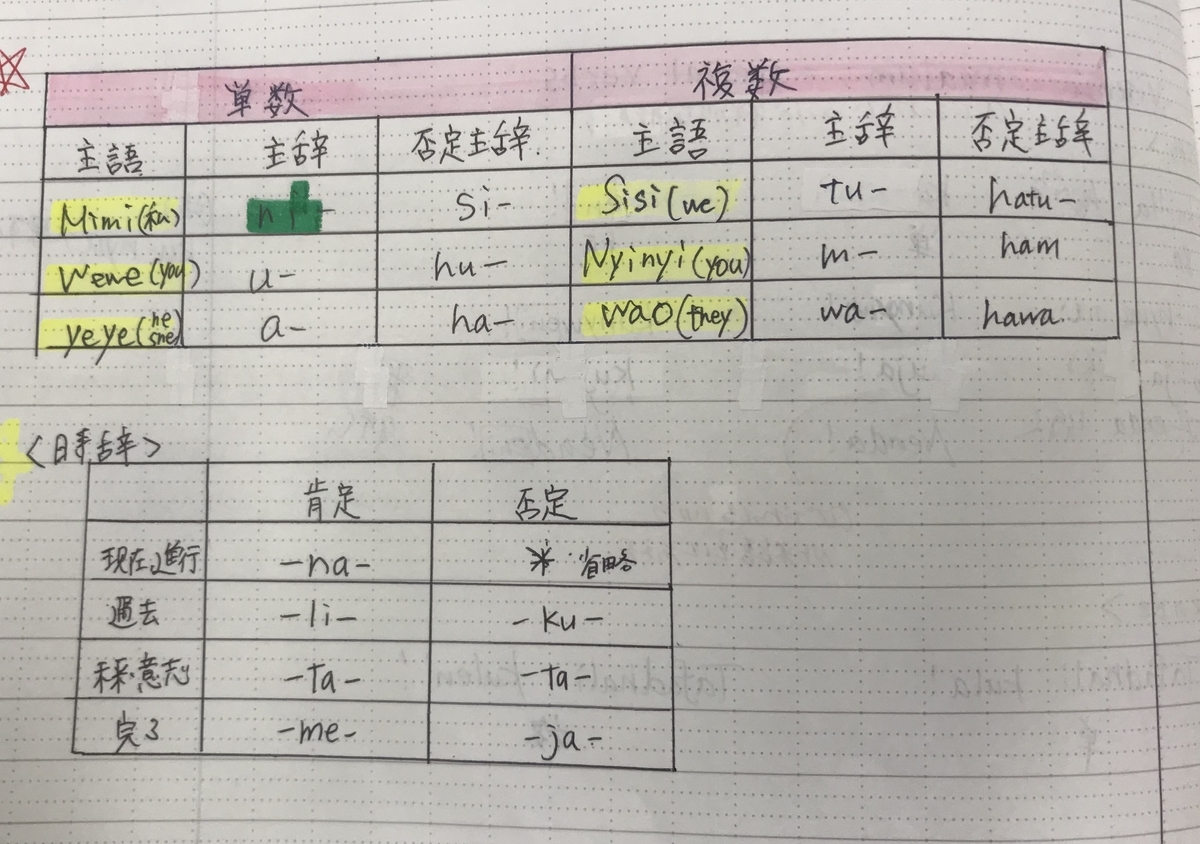 単数 複数
主語 主辞 否定主辞. 主語 主辞 否定主辞
Mimi(私) ni- si- Sisi(we) tu- hatu-
Wewe(you) u- hu- Nyinyi(you) m- ham
yeye(he she) a- ha- wao(they) wa- hawa.
<時辞>
肯定 否定
現在進行 -na- ※省略
過去 -li- -ku-
未来・意志 -ta- -ta-
完了 -me- -ja-